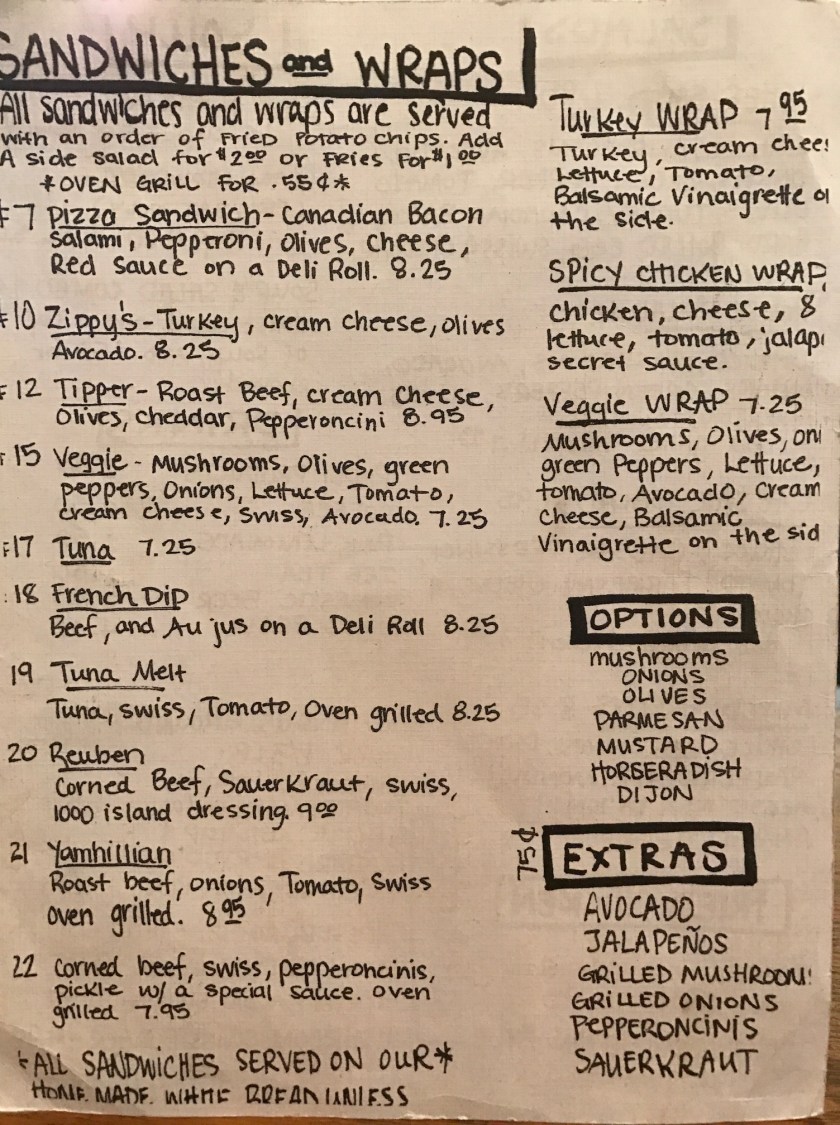 SANDWICHES and WRAPS
All sandwiches and wraps are served
with an order of Fried Potato chips. Add
A side salad for $2.00 or Fries For $1.00
*OVEN GRILL FOR .55¢*
#7 Pizza Sandwich - Canadian Bacon
Salami, Pepperoni, Olives, Cheese,
Red Sauce on a Deli Roll. 8.25
#10 Zippy's - Turkey, cream cheese, olives
Avocado. 8.25
#12 Tipper - Roast Beef, cream Cheese,
Olives, Cheddar, Pepperoncini 8.95
15 Veggie - Mushrooms, Olives, green
peppers, Onions, Lettuce, Tomato,
cream cheese, Swiss, Avocado. 7.25
#17 Tuna 7.25
18 French Dip
Beef, and Au jus on a Deli Roll 8.25
19 Tuna Melt
Tuna, swiss, Tomato, Oven grilled 8.25
20 Reuben
Corned Beef, Sauerkraut, swiss,
1000 island dressing. 9.00
21 Yamhillian
Roast beef, onions, Tomato, Swiss
oven grilled. 8.95
22 Corned beef, swiss, pepperoncinis,
pickle w/ a special sauce. oven
grilled 7.95
*ALL SANDWICHES SERVED ON OUR*
HOME MADE WHITE BREAD UNLESS
Turkey WRAP 7.95
Turkey, cream chees
Lettuce, Tomato,
Balsamic Vinaigrette o
the side.
SPICY CHICKEN WRAP
chicken, cheese, 8
lettuce, tomato, jalap
secret sauce.
Veggie WRAP 7.25
Mushrooms, Olives, oni
green Peppers, Lettuce,
tomato, Avocado, Cream
Cheese, Balsamic
Vinaigrette on the sid
OPTIONS
mushrooms
ONIONS
OLIVES
PARMESAN
MUSTARD
HORSERADISH
DIJON
75¢ EXTRAS
AVOCADO
JALAPEÑOS
GRILLED MUSHROOMS
GRILLED ONIONS
PEPPERONCINIS
SAUERKRAUT